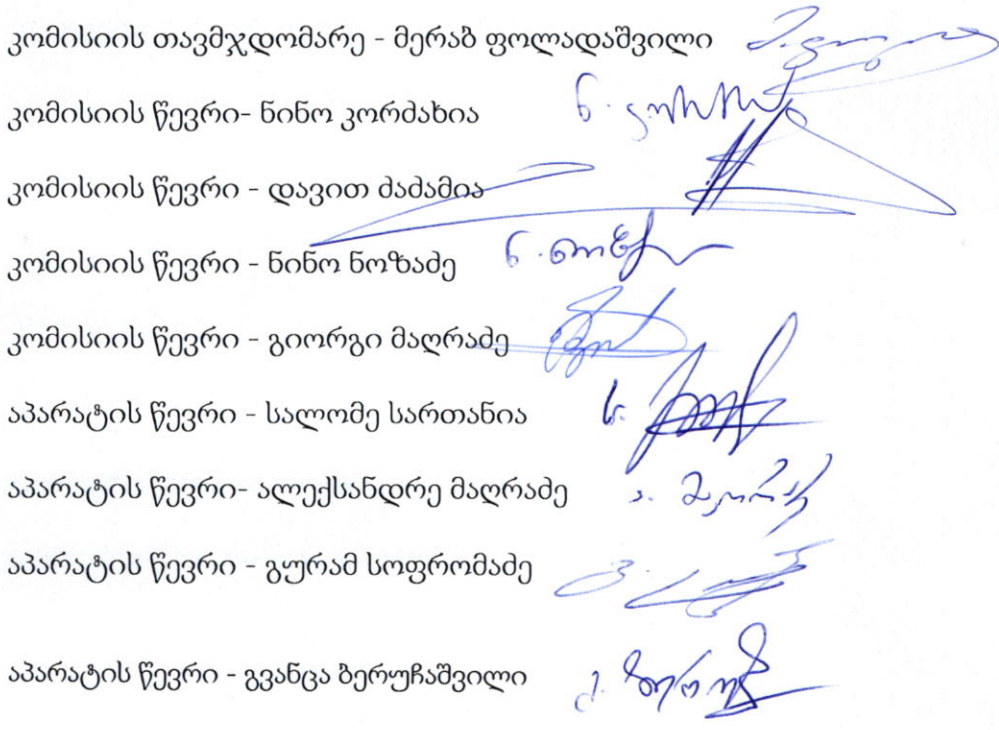 კომისიის თავმჯდომარე - მერაბ ფოლადაშვილი
კომისიის წევრი- ნინო კორძახია
კომისიის წევრი - დავით ძაძამია
კომისიის წევრი - ნინო ნოზაძე
კომისიის წევრი - გიორგი მაღრაძე
აპარატის წევრი - სალომე სართანია
აპარატის წევრი- ალექსანდრე მაღრაძე
აპარატის წევრი - გურამ სოფრომაძე
აპარატის წევრი - გვანცა ბერუჩაშვილი